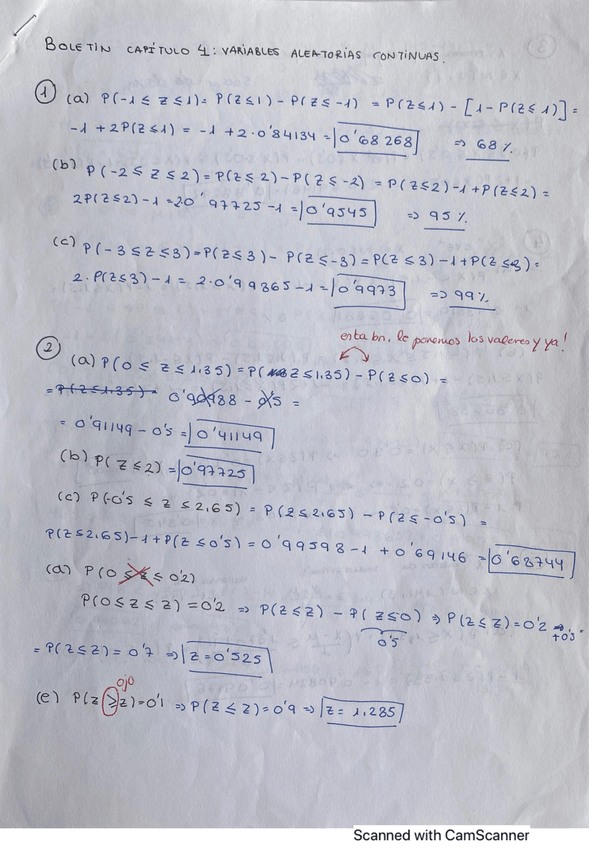 BOLETIN CAPÍTULO 4: VARIABLES ALEATORIAS CONTINUAS.
① (a) P(-1 ≤ Z ≤ 1) = P(Z ≤ 1) - P(Z ≤ -1) = P(Z ≤ 1) - [1 - P(Z ≤ 1)] =
-1 + 2P(Z ≤ 1) = -1 + 2·0'84134 = 0'68268 ⇒ 68%.
(b) P(-2 ≤ Z ≤ 2) = P(Z ≤ 2) - P(Z ≤ -2) = P(Z ≤ 2) - 1 + P(Z ≤ 2) =
2P(Z ≤ 2) - 1 = 2·0'97725 - 1 = 0'9545 ⇒ 95%
(c) P(-3 ≤ Z ≤ 3) = P(Z ≤ 3) - P(Z ≤ -3) = P(Z ≤ 3) - 1 + P(Z ≤ 3) =
2·P(Z ≤ 3) - 1 = 2·0'99865 - 1 = 0'9973 ⇒ 99%
esta bn. le ponemos los valores y ya!
② (a) P(0 ≤ Z ≤ 1.35) = P(Z ≤ 1.35) - P(Z ≤ 0) =
= P(Z ≤ 1.35) - 0'90988 - 0'5 =
= 0'91149 - 0'5 = 0'41149
(b) P(Z ≤ 2) = 0'97725
(c) P(-0'5 ≤ Z ≤ 2,65) = P(Z ≤ 2.65) - P(Z ≤ -0'5) =
P(Z ≤ 2.65) - 1 + P(Z ≤ 0'5) = 0'99598 - 1 + 0'69146 = 0'68744
(d) P(0 ≤ Z ≤ 0'2)
P(0 ≤ Z ≤ z) = 0'2 ⇒ P(Z ≤ z) - P(Z ≤ 0) ⇒ P(Z ≤ z) = 0'2 +0'5
0'5
= P(Z ≤ z) = 0'7 ⇒ z = 0'525
ojo
(e) P(Z ≥ z) = 0'1 ⇒ P(Z ≤ z) = 0'9 ⇒ z = 1.285
Scanned with CamScanner